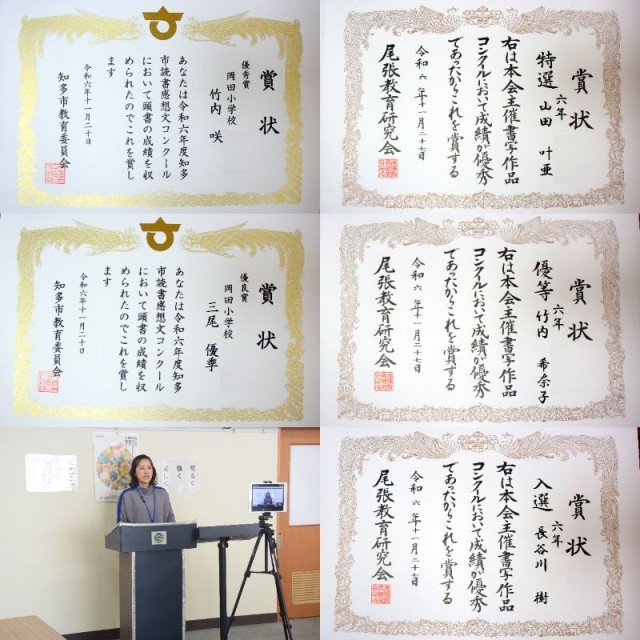 賞状
優秀賞
岡田小学校
竹内 咲
あなたは令和六年度知多
市読書感想文コンクール
において頭書の成績を収
められたのでこれを賞し
ます
令和六年十一月二十日
知多市教育委員会
賞状
六年
特選 山田 叶亜
右は本会主催書写作品
コンクールにおいて成績が優秀
であったからこれを賞する
令和 六 年十一月二十七日
尾張教育研究会
賞状
優良賞
岡田小学校
三尾 優季
あなたは令和六年度知多
市読書感想文コンクール
において頭書の成績を収
められたのでこれを賞し
ます
令和六年十一月二十日
知多市教育委員会
賞状
六年
優等 竹内 希奈子
右は本会主催書写作品
コンクールにおいて成績が優秀
であったからこれを賞する
令和 六 年十一月二十七日
尾張教育研究会
明るく
強く
賞状
六年
入選 長谷川 樹
右は本会主催書写作品
コンクールにおいて成績が優秀
であったからこれを賞する
令和 六 年十一月二十七日
尾張教育研究会